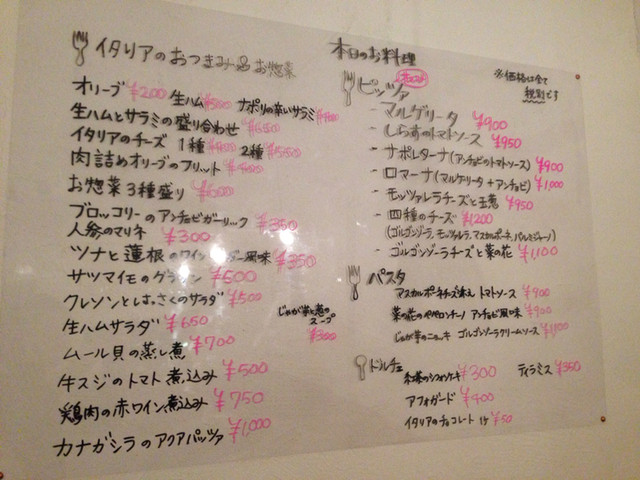 イタリアのおつまみ&お惣菜
オリーブ ¥200 生ハム ナポリの辛いサラミ
生ハムとサラミの盛り合わせ ¥650
イタリアのチーズ 1種 2種 ¥550
肉詰めオリーブのフリット ¥400
お惣菜3種盛り ¥600
ブロッコリーのアンチョビガーリック ¥350
人参のマリネ ¥300
ツナと蓮根の 風味 ¥350
サツマイモのグラタン ¥500
クレソンとはっさくのサラダ ¥500
生ハムサラダ ¥650
じゃが芋と葱の
スープ
¥300
ムール貝の蒸し煮 ¥700
牛スジのトマト煮込み ¥500
鶏肉の赤ワイン煮込み ¥750
カナガシラのアクアパッツァ ¥1,000
本日のお料理
※価格は全て
税別です
ピッツァ
- マルゲリータ ¥900
- しらすのトマトソース ¥950
- ナポレターナ(アンチョビのトマトソース) ¥900
- ロマーナ(マルゲリータ+アンチョビ) ¥1,000
- モッツァレラチーズと玉葱 ¥950
- 四種のチーズ ¥1200
(ゴルゴンゾーラ、モッツァレラ、マスカルポーネ、パルミジャーノ)
- ゴルゴンゾーラチーズと菜の花 ¥1,100
パスタ
マスカルポーネチーズ入り トマトソース ¥900
菜の花のペペロンチーノ アンチョビ風味 ¥900
じゃが芋のニョッキ ゴルゴンゾーラクリームソース ¥1,100
ドルチェ
紅茶のシフォンケーキ ¥300 ティラミス ¥350
アフォガード ¥400
イタリアのチョコレート 1ケ ¥50